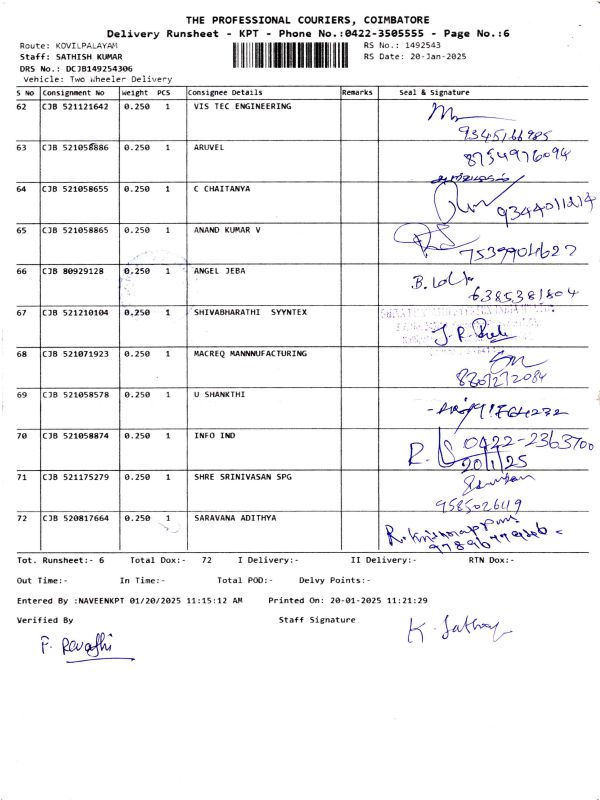 THE PROFESSIONAL COURIERS, COIMBATORE
Delivery Runsheet - KPT - Phone No.:0422-3505555 - Page No.:6
Route: KOVILPALAYAM RS No.: 1492543
Staff: SATHISH KUMAR RS Date: 20-Jan-2025
DRS No.: DCJB149254306
Vehicle: Two Wheeler Delivery
S No Consignment No Weight PCS Consignee Details Remarks Seal & Signature
62 CJB 521121642 0.250 1 VIS TEC ENGINEERING
9345166985
63 CJB 521058886 0.250 1 ARUVEL 8754976094
64 CJB 521058655 0.250 1 C CHAITANYA
9344011214
65 CJB 521058865 0.250 1 ANAND KUMAR V
7539904627
66 CJB 80929128 0.250 1 ANGEL JEBA
6385381804
67 CJB 521210104 0.250 1 SHIVABHARATHI SYYNTEX
68 CJB 521071923 0.250 1 MACREQ MANNNUFACTURING
69 CJB 521058578 0.250 1 U SHANKTHI
70 CJB 521058874 0.250 1 INFO IND 0422-2363700
20/1/25
71 CJB 521175279 0.250 1 SHRE SRINIVASAN SPG
9585026119
72 CJB 520817664 0.250 1 SARAVANA ADITHYA
Tot. Runsheet:- 6 Total Dox:- 72 I Delivery:- II Delivery:- RTN Dox:-
Out Time:- In Time:- Total POD:- Delvy Points:-
Entered By :NAVEENKPT 01/20/2025 11:15:12 AM Printed On: 20-01-2025 11:21:29
Verified By Staff Signature
F. Revathi K. Sathay